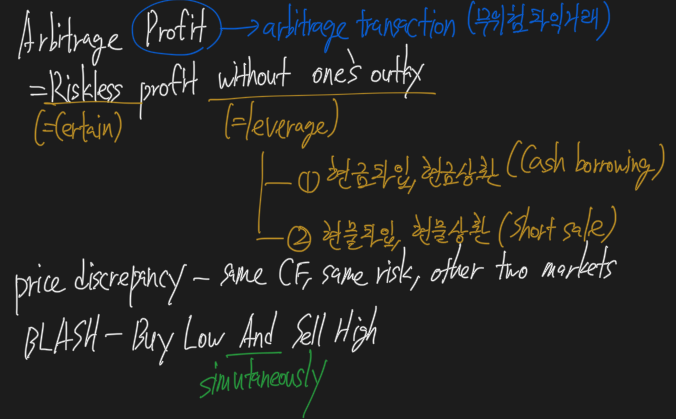 Arbitrage Profit → arbitrage transaction (무위험차익거래)
= Riskless profit without one's outlay
(=Certain) (=leverage)
① 현금차입, 현금상환 (Cash borrowing)
② 현물차입, 현물상환 (Short sale)
price discrepancy - same CF, same risk, other two markets
BLASH - Buy Low And Sell High
simutaneously